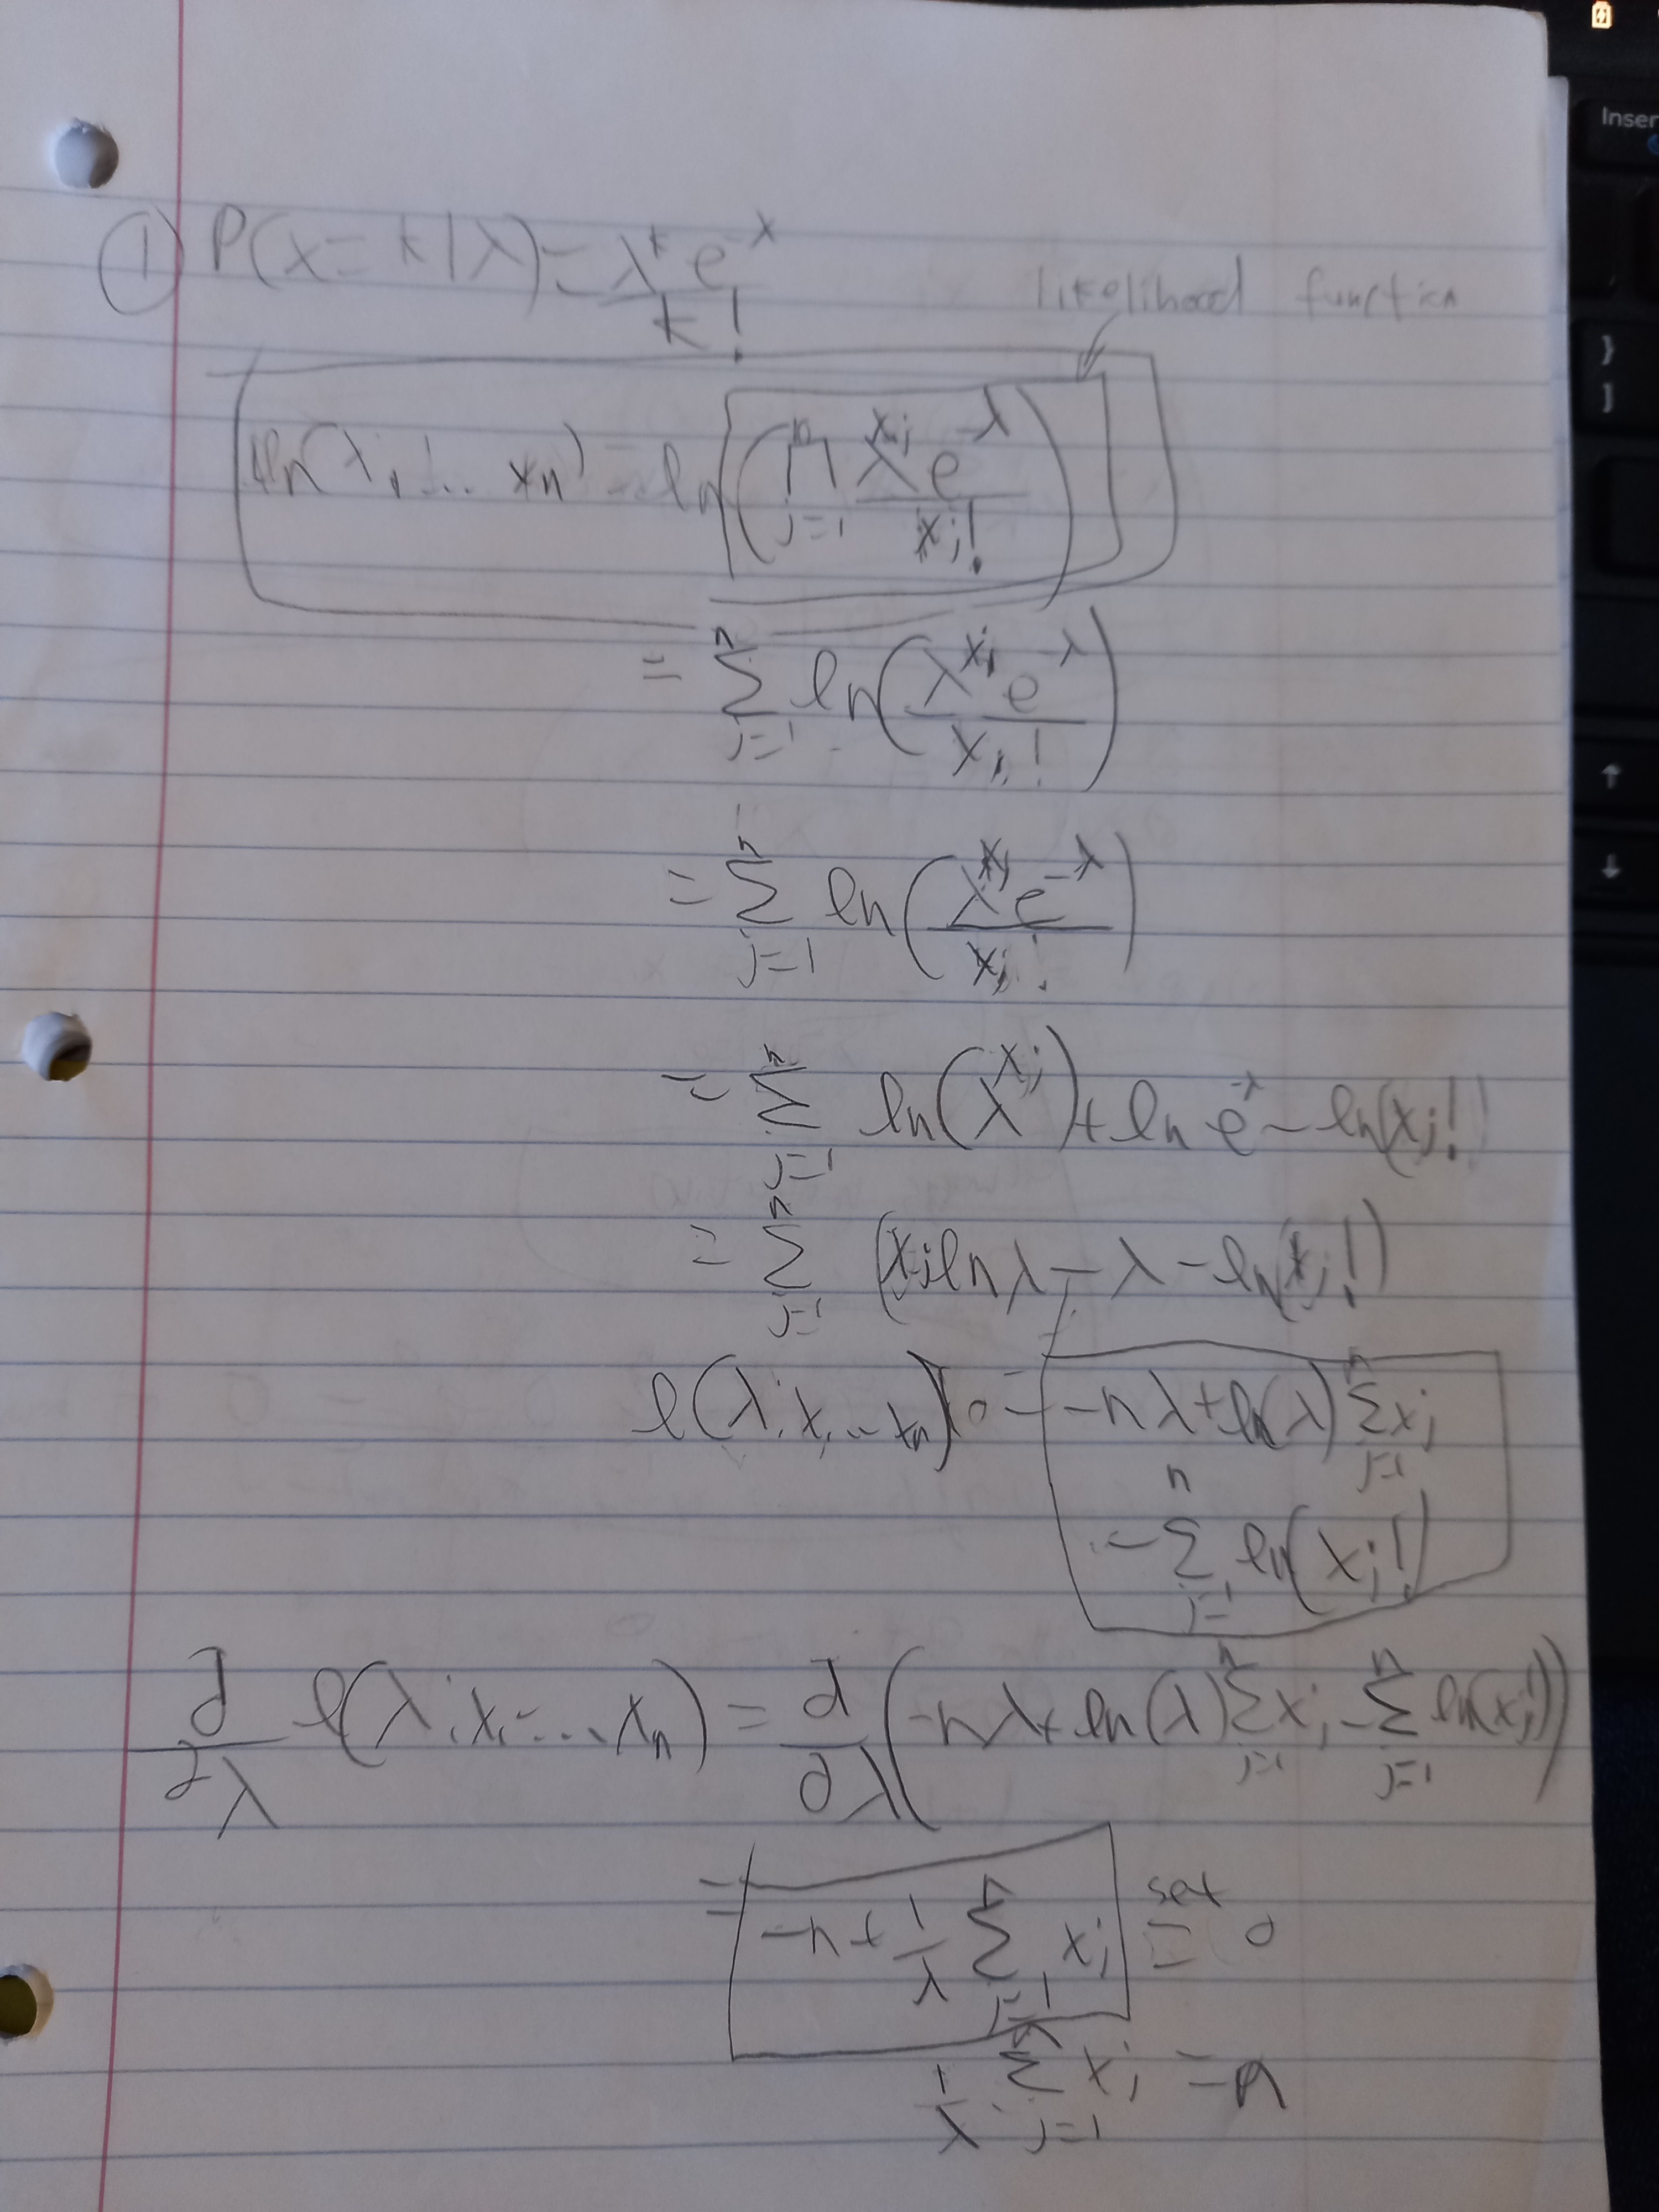 ① P(x=k|λ) = λ^k e^-λ / k!
likelihood function
ln(λ, ... xn) = ln( ∏_{j=1}^{n} λ^{xj} e^{-λ} / xj! )
= Σ_{j=1}^{n} ln( λ^{xj} e^{-λ} / xj! )
= Σ_{j=1}^{n} ln( λ^{xj} e^{-λ} / xj! )
= Σ_{j=1}^{n} ln(λ^{xj}) + ln e^{-λ} - ln(xj!)
= Σ_{j=1}^{n} (xj ln λ - λ - ln(xj!)
l(λ; x, ... xn) = -nλ + ln(λ) Σ_{j=1}^{n} xj
- Σ_{j=1}^{n} ln(xj!)
∂/∂λ l(λ, x, ... xn) = ∂/∂λ ( -nλ + ln(λ) Σ_{j=1}^{n} xj - Σ_{j=1}^{n} ln(xj!) )
= -n + 1/λ Σ_{j=1}^{n} xj set = 0
1/λ · Σ_{j=1}^{n} xj = n
Inser
}
]
↑
↓